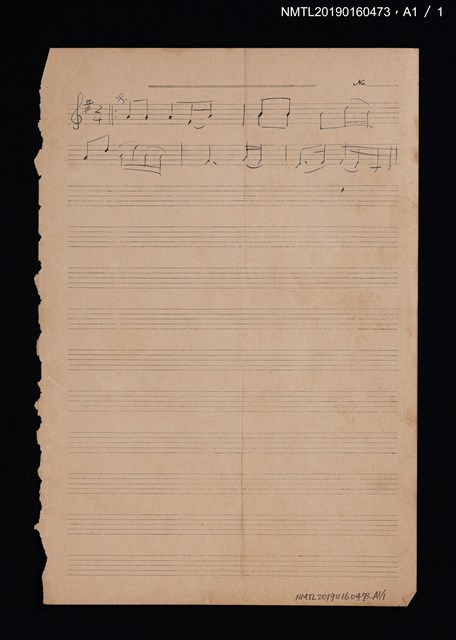 NMTL20190160473，A1 / 1
No.
2
4
NMTL20190160473.A1/1